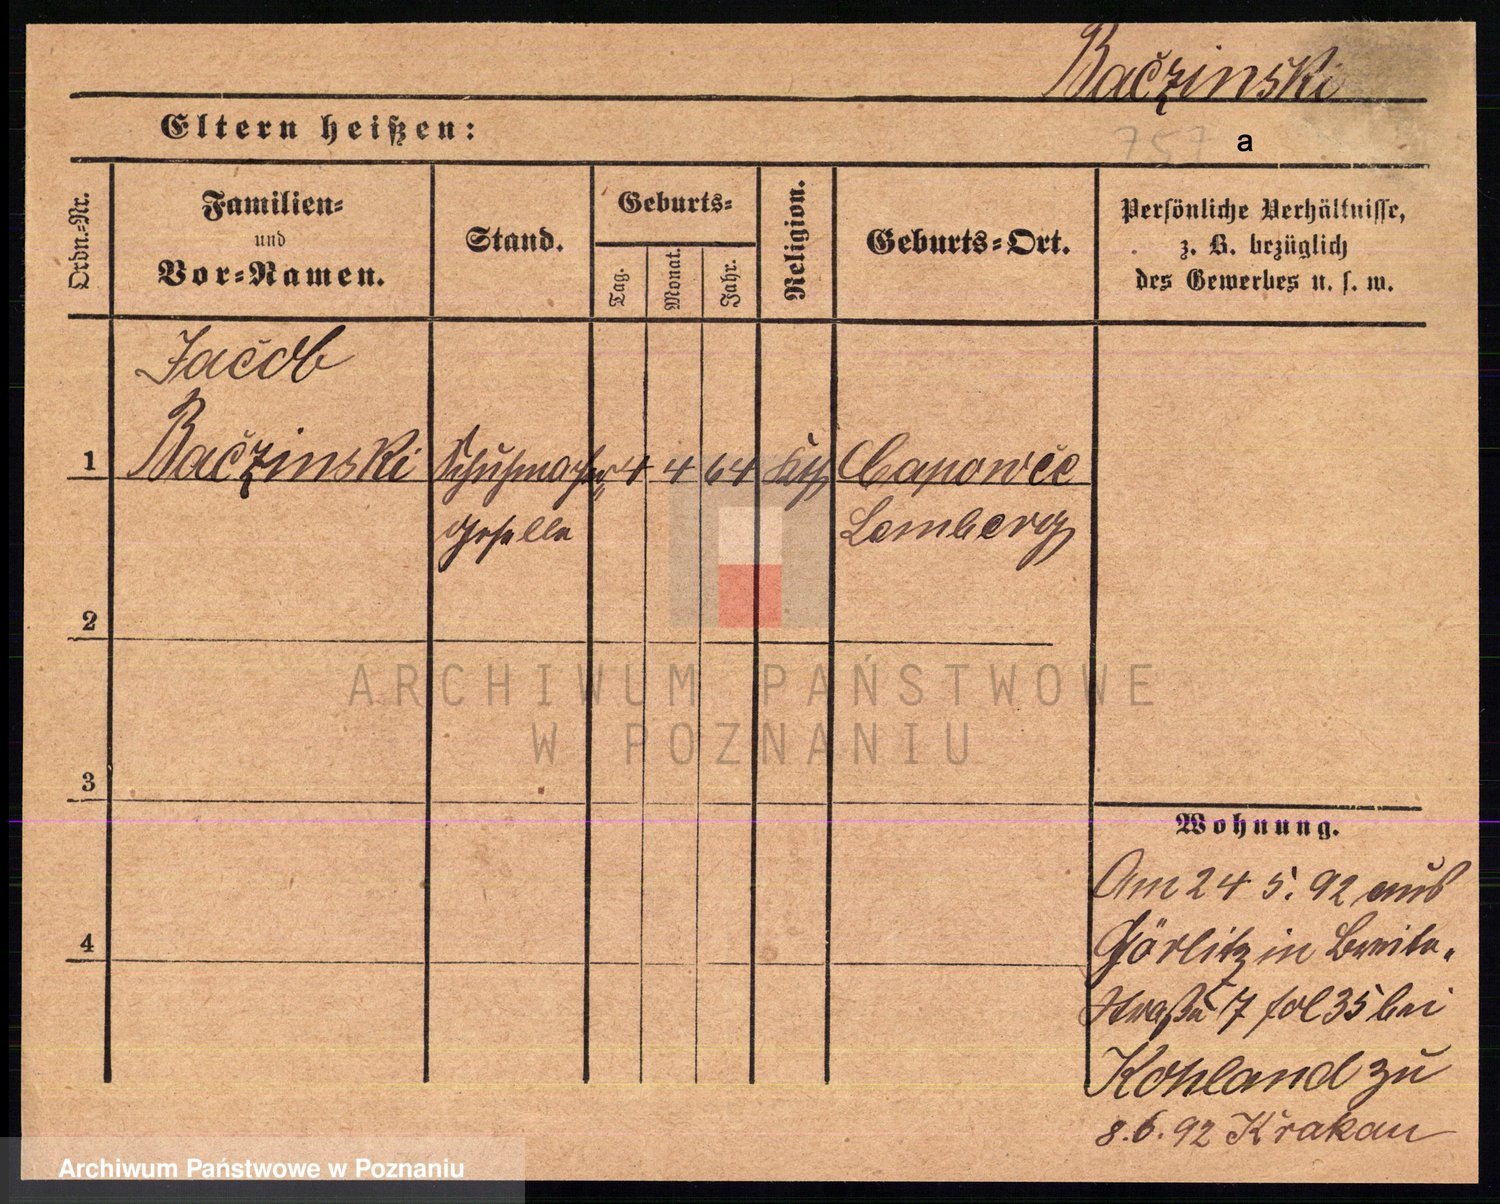 Bačzinski
Eltern heißen:
757 a
Ordn.-Nr.
Familien-
und
Vor-Namen.
Stand.
Geburts-
Tag.
Monat.
Jahr.
Religion.
Geburts-Ort.
Persönliche Verhältnisse,
z. B. bezüglich
des Gewerbes u. s. w.
Jacob
1 Bačzinski Schuhmacher 4 4 64 Kth Capowce
geselle Lemberg
2
ARCHIWUM PAŃSTWOWE
W POZNANIU
3
Wohnung.
Am 24 5. 92 aus
Görlitz in Breite-
4
straße 7 fol 35 bei
Kohland zu
8. 6. 92 Krakau
Archiwum Państwowe w Poznaniu